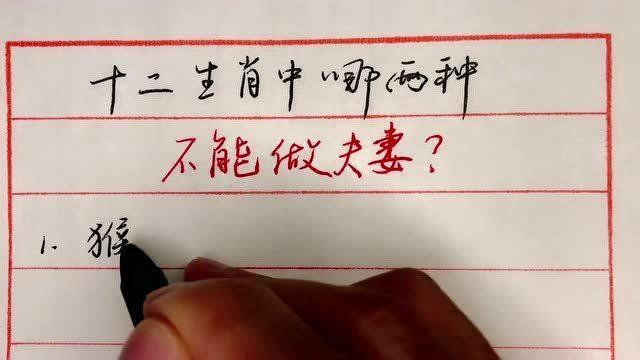 十二生肖中哪两种
不能做夫妻?
1. 猴